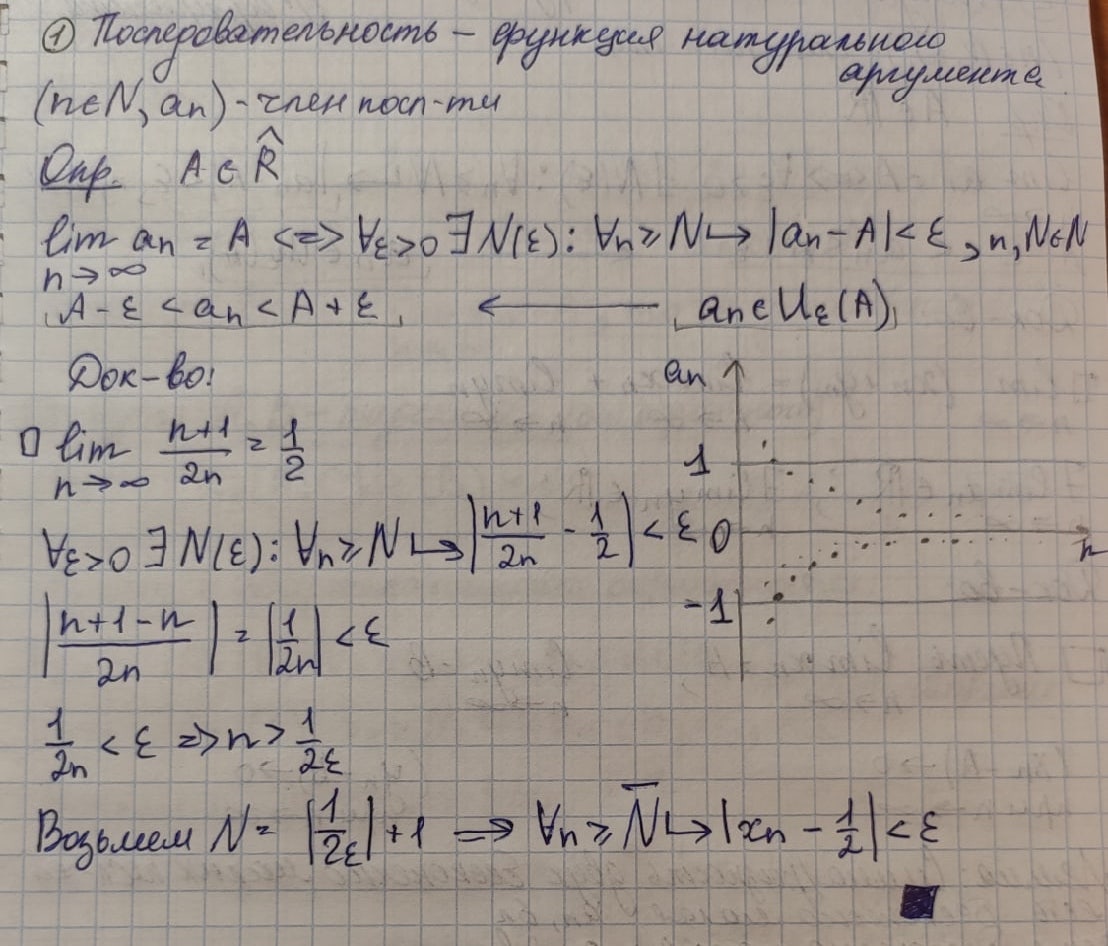 ① Последовательность – функция натурального
аргумента
(n∈N, aₙ) - член посл-ти
Опр. A ∈ R̂
lim aₙ = A <=> ∀ε>0 ∃N(ε): ∀n≥N ↦ |aₙ-A|<ε, n,N∈N
n→∞
A-ε < aₙ < A+ε ⟵ aₙ∈Uε(A)
Док-во:
□ lim (n+1)/(2n) = 1/2
n→∞
∀ε>0 ∃N(ε): ∀n≥N ↦ |(n+1)/(2n) - 1/2| < ε
|(n+1-n)/(2n)| = |1/(2n)| < ε
1/(2n) < ε => n > 1/(2ε)
Возьмем N = |1/(2ε)|+1 => ∀n ≥ N̄ ↦ |xₙ - 1/2| < ε
aₙ
1
0
n
-1